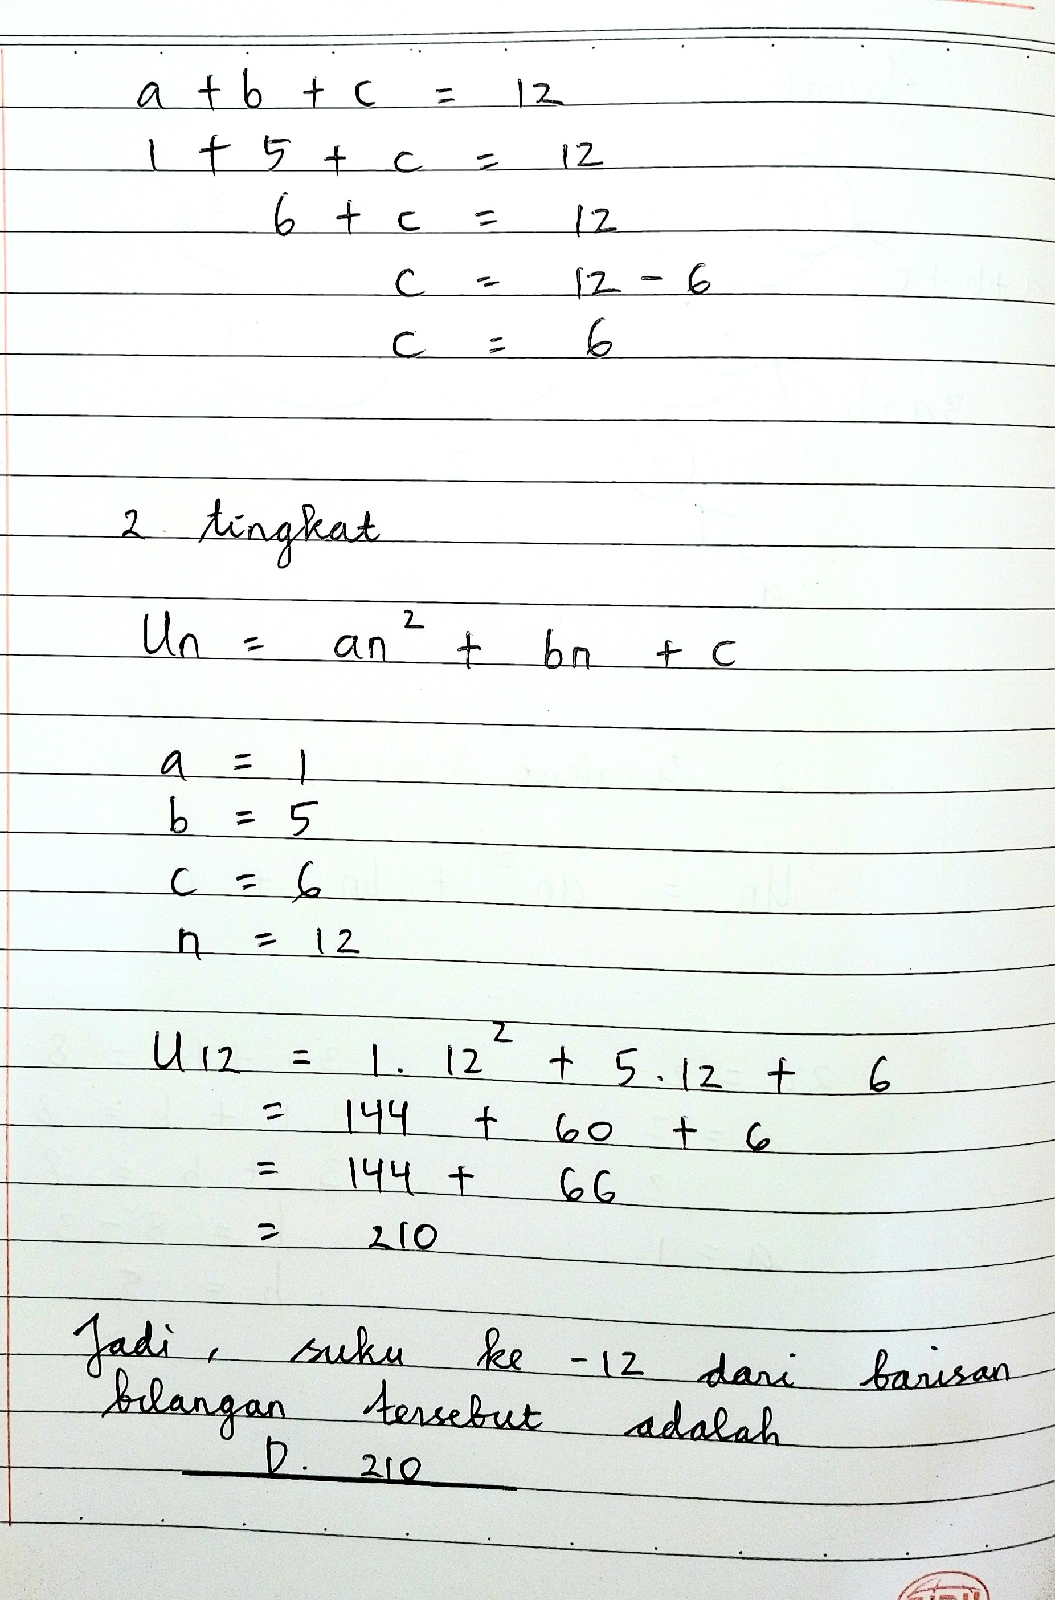 a + b + c = 12
1 + 5 + c = 12
6 + c = 12
c = 12 - 6
c = 6
2 tingkat
Un = an² + bn + c
a = 1
b = 5
c = 6
n = 12
U12 = 1. 12² + 5.12 + 6
= 144 + 60 + 6
= 144 + 66
= 210
Jadi, suku ke -12 dari barisan
bilangan tersebut adalah
D. 210